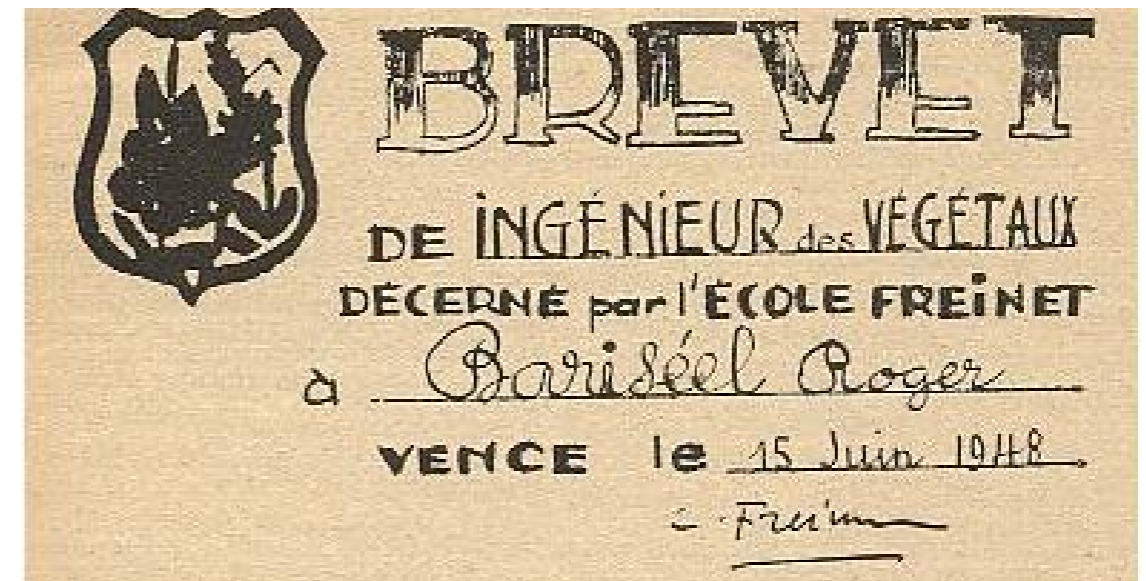 BREVET
DE INGÉNIEUR des VÉGÉTAUX
DÉCERNÉ par l'ÉCOLE FREINET
à Bariséel Roger
VENCE le 15 Juin 1948.
C. Freinet